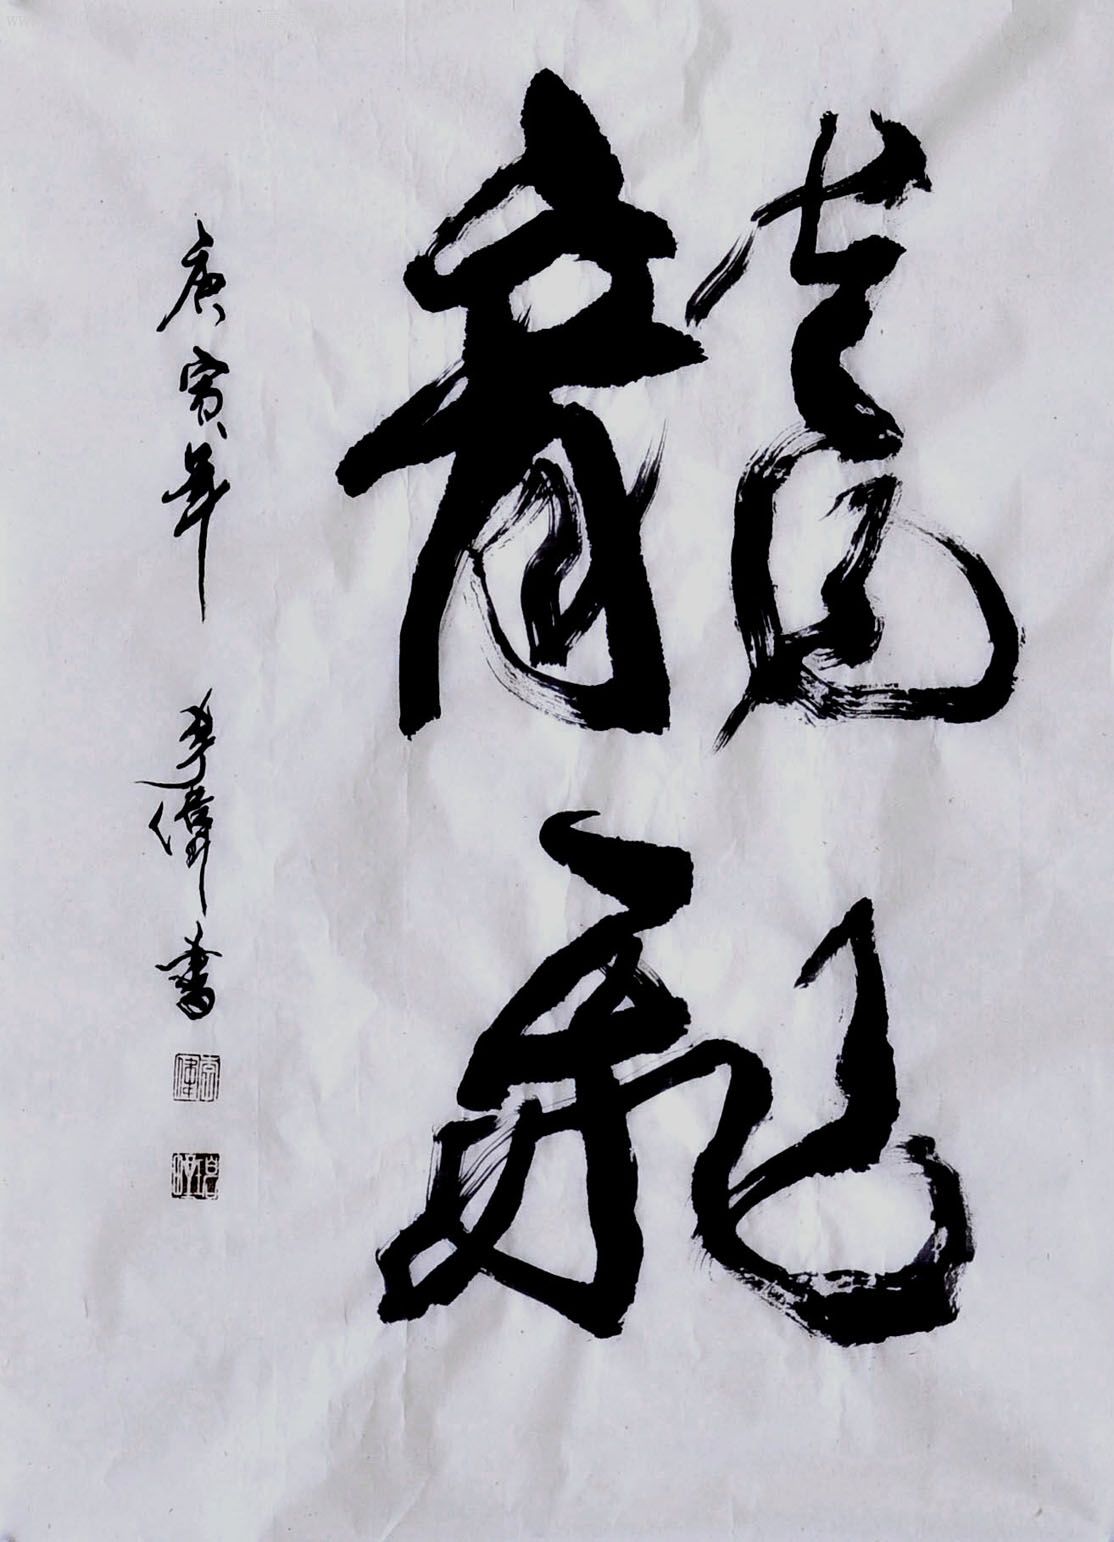 龍飛
庚寅年 李偉書